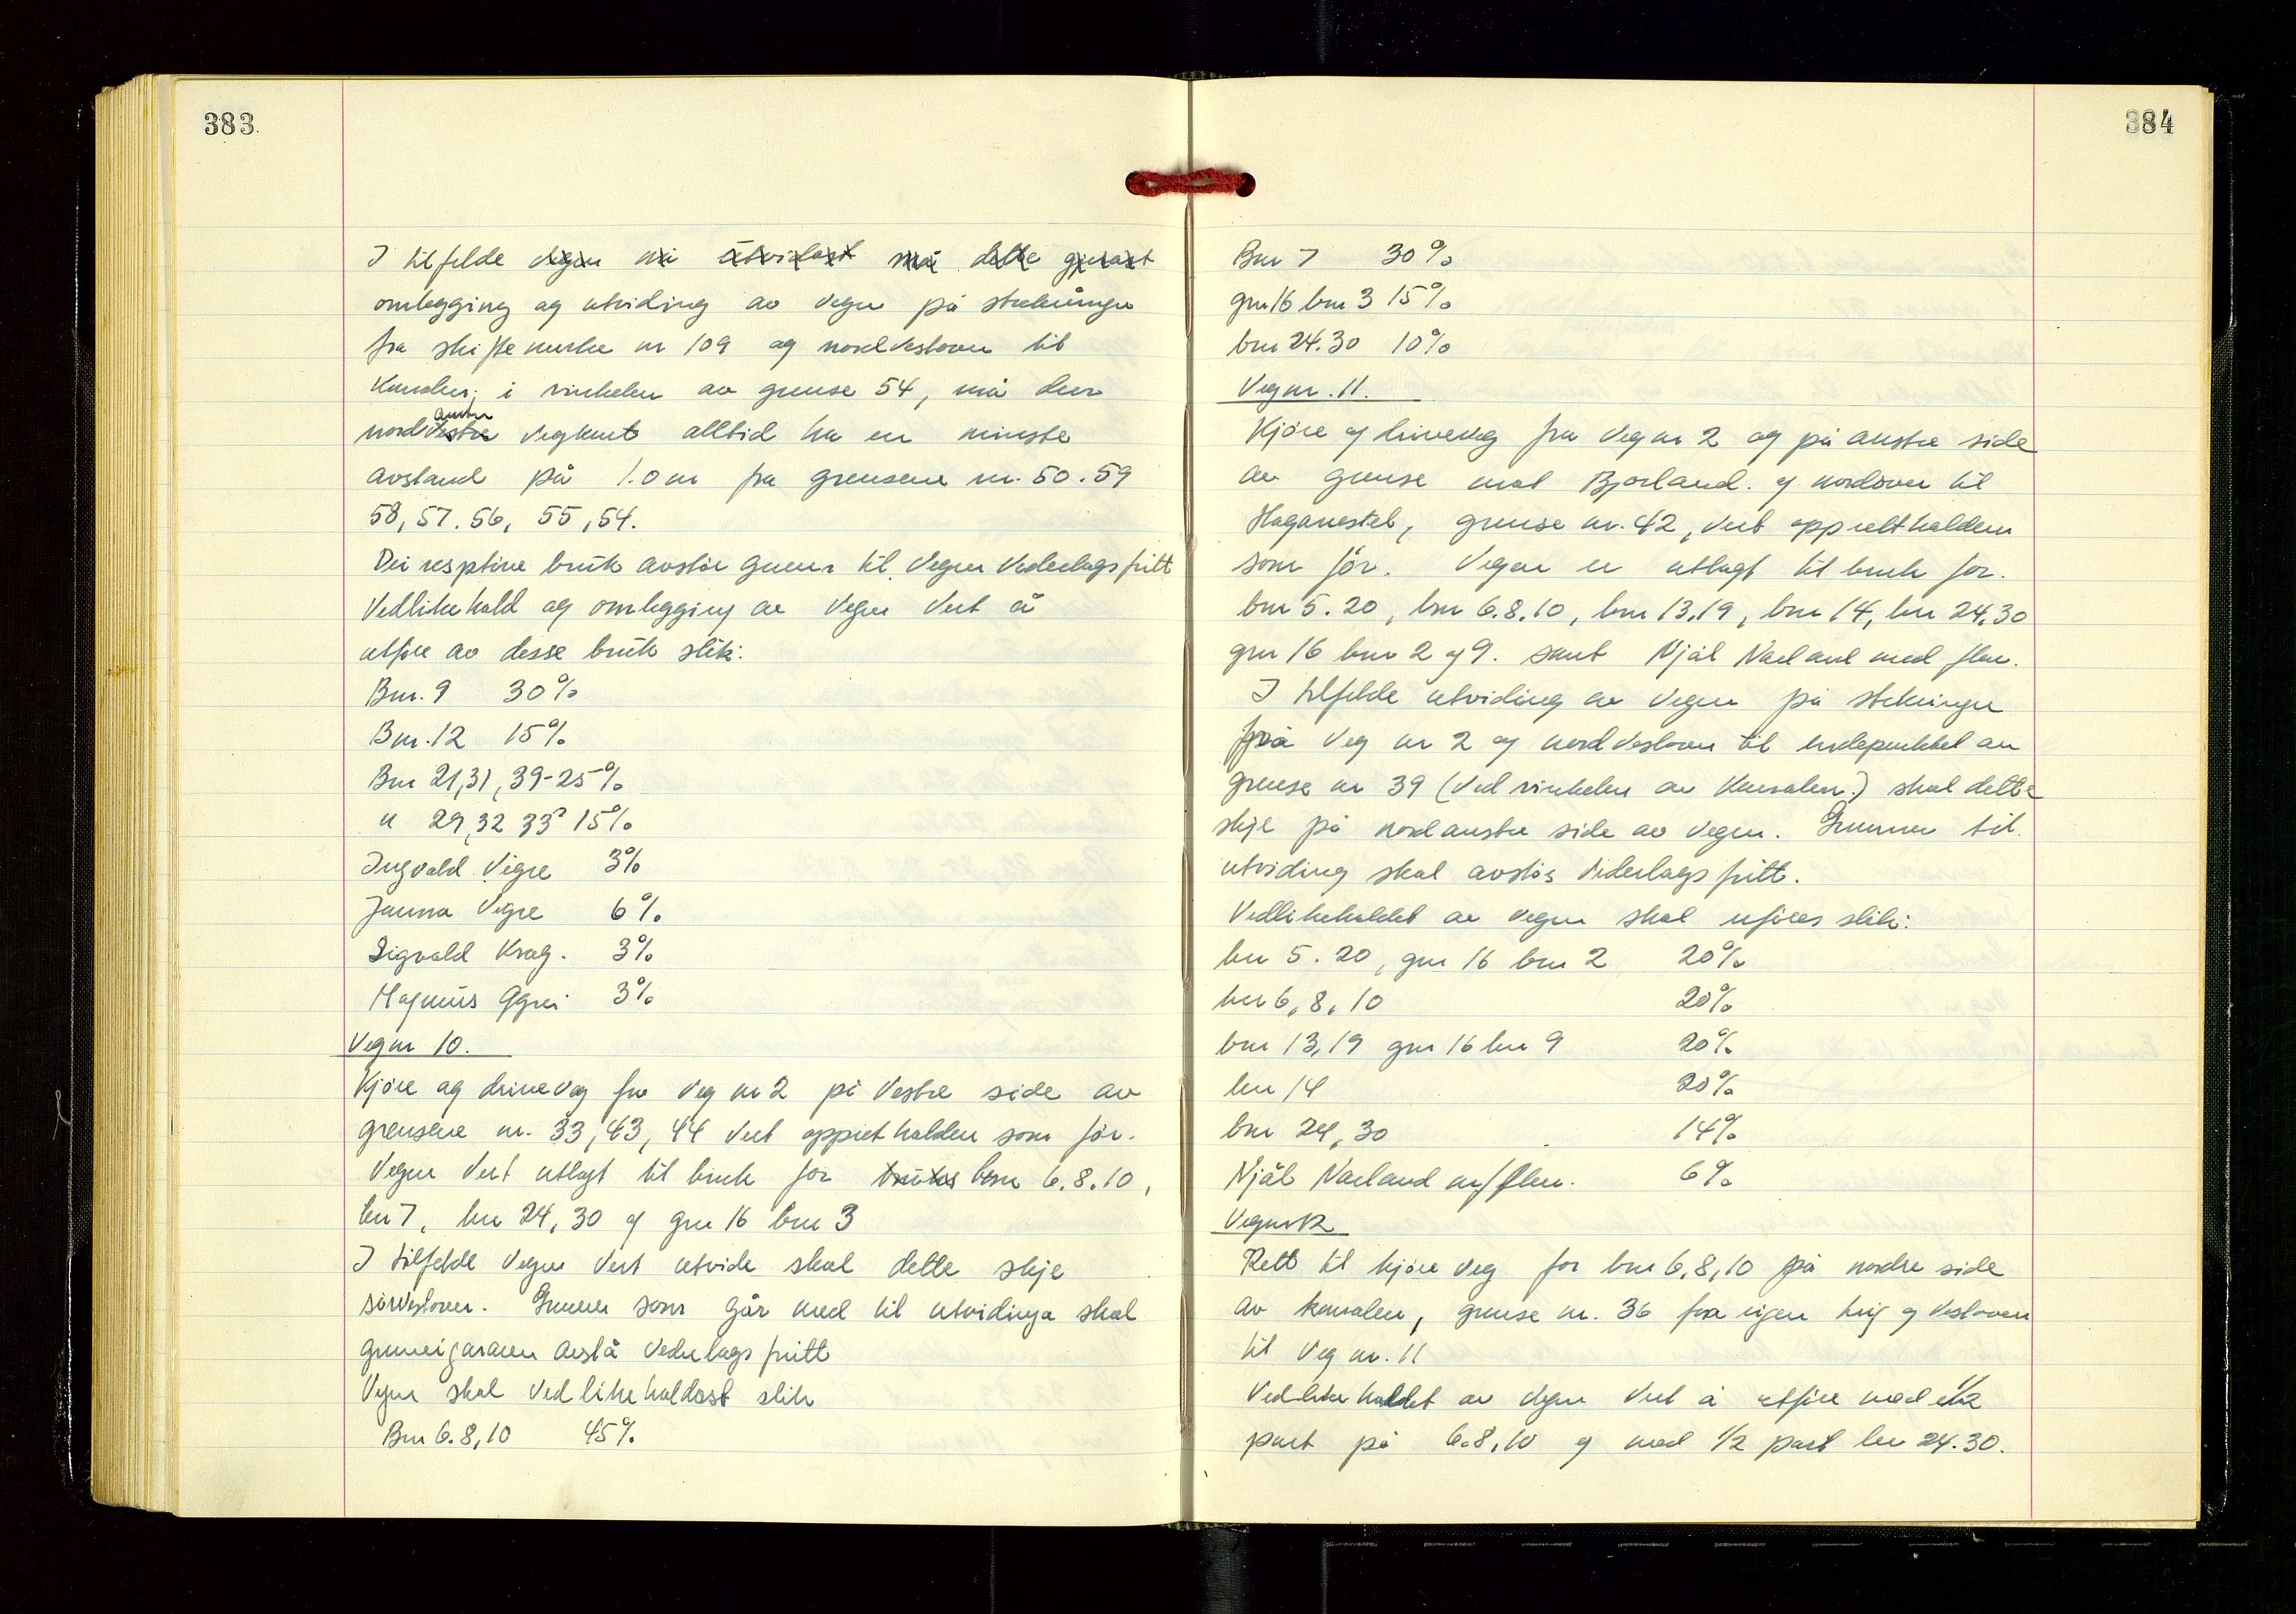 383
I tilfelde vegen må utvidast må dette gjerast
omlegging og utviding av vegen på strekningen
fra skiftemerke nr 109 og nordvestover til
Kanalen, i vinkelen av grense 54, må den
austre
nordvestre vegkant alltid ha en minste
avstand på 1.0 m fra grensene nr. 50.59
58, 57. 56, 55, 54.
Dei resptive bruk avstår grunn til vegen vederlagsfritt
Vedlikehald og omlegging av vegen vert å
utføre av desse bruk slik:
Bnr. 9 30%
Bnr. 12 15%
Bnr 21,31,39-25%
" 29,32 33 15%
Ingvald Vigre 3%
Janna Vigre 6%
Sigvald Krag. 3%
Magnus 3%
Vegnr 10.
Kjøre og driveveg fra veg nr 2 på vestre side av
grensene nr. 33, 43, 44 vert opprettholden som før.
Vegen vert utlagt til bruk for bruks bnr 6.8.10,
bnr 7, bnr 24, 30 og gnr 16 bnr 3
I tilfelde vegen vert utvide skal dette skje
sørvestover. Grunnen som går med til utvidinga skal
grunneigararen avstå vederlagsfritt
Vegen skal vedlikehaldast slik
Bnr 6.8,10 45%
384
Bnr 7 30%
gnr 16 bnr 3 15%
bnr 24.30 10%
Vegnr. 11.
Kjøre og driveveg fra veg nr 2 og på austre side
av grense mot Bjorland. og nordover til
Haganestet, grense nr. 42, vert opprettholden
som før. Vegen er utlagt til bruk for.
bnr 5.20, bnr 6.8.10, bnr 13.19, bnr 14, bnr 24,30
gnr 16 bnr 2 og 9. samt Njål Nærland med flere.
I tilfelde utviding av vegen på strekningen
frå veg nr 2 og nordvestover til endepunktet av
grense nr 39 (ved vinkelen av Kanalen.) skal dette
skje på nordaustre side av vegen. Grunnen til.
utviding skal avstås vederlagsfritt.
Vedlikehaldet av vegen skal uføres slik:
bnr 5.20, gnr 16 bnr 2 20%
bnr 6, 8, 10 20%
bnr 13,19 gnr 16 bnr 9 20%
bnr 14 20%
bnr 24, 30 14%
Njål Nærland m/flere. 6%
Vegnr 12
Rett til kjøreveg for bnr 6,8,10 på nordre side
av kanalen, grense nr. 36 fra eigen teig og vestover
til veg nr. 11
Vedlikehaldet av vegen vert å utføre med 1/2
part på 6.8,10 og med 1/2 part bnr 24.30.